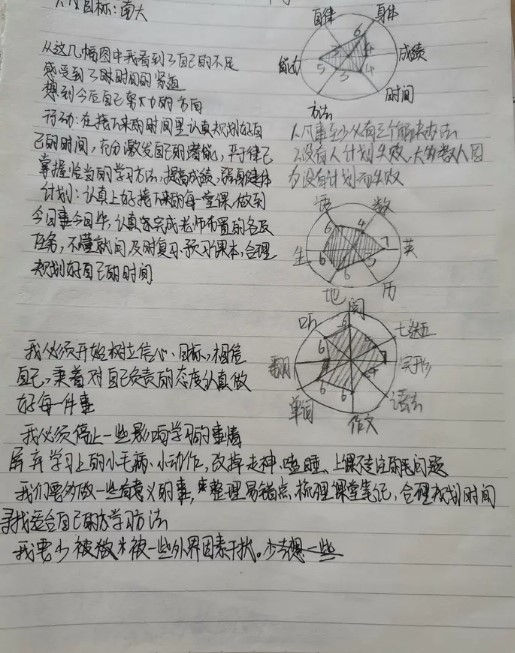 目标:南大
自律
身体
成绩
时间
方法
能力
6
5
3
4
从这几幅图中我看到了自己的不足
感受到了时间的紧迫
想到今后自己努力的方向
行动:在接下来的时间里认真规划好自
己的时间,充分激发自己的潜能,严于律己
掌握恰当的学习方法,提高成绩,强身健体
计划:认真上好接下来的每一堂课,做到
今日事今日毕,认真完成老师布置的各项
任务,不懂就问及时复习预习课本,合理
规划好自己的时间
1.凡事至少有三个解决办法
2.没有人计划失败,大多数人因
为没有计划而失败
语
数
英
历
地
生
6
4
7
5
6
6
阅
七选五
完形
语法
作文
单词
翻
听
6
6
6
4
我必须开始树立信心、目标,相信
自己,秉着对自己负责的态度认真做
好每一件事
我必须停止一些影响学习的事情
屏弃学习上的小毛病、小动作,改掉走神、瞌睡、上课注问题
我们要多做一些有意义的事,整理易错点,梳理课堂笔记,合理规划时间
寻找适合自己的学习方法
我要少被一些外界因素干扰。少去想一些